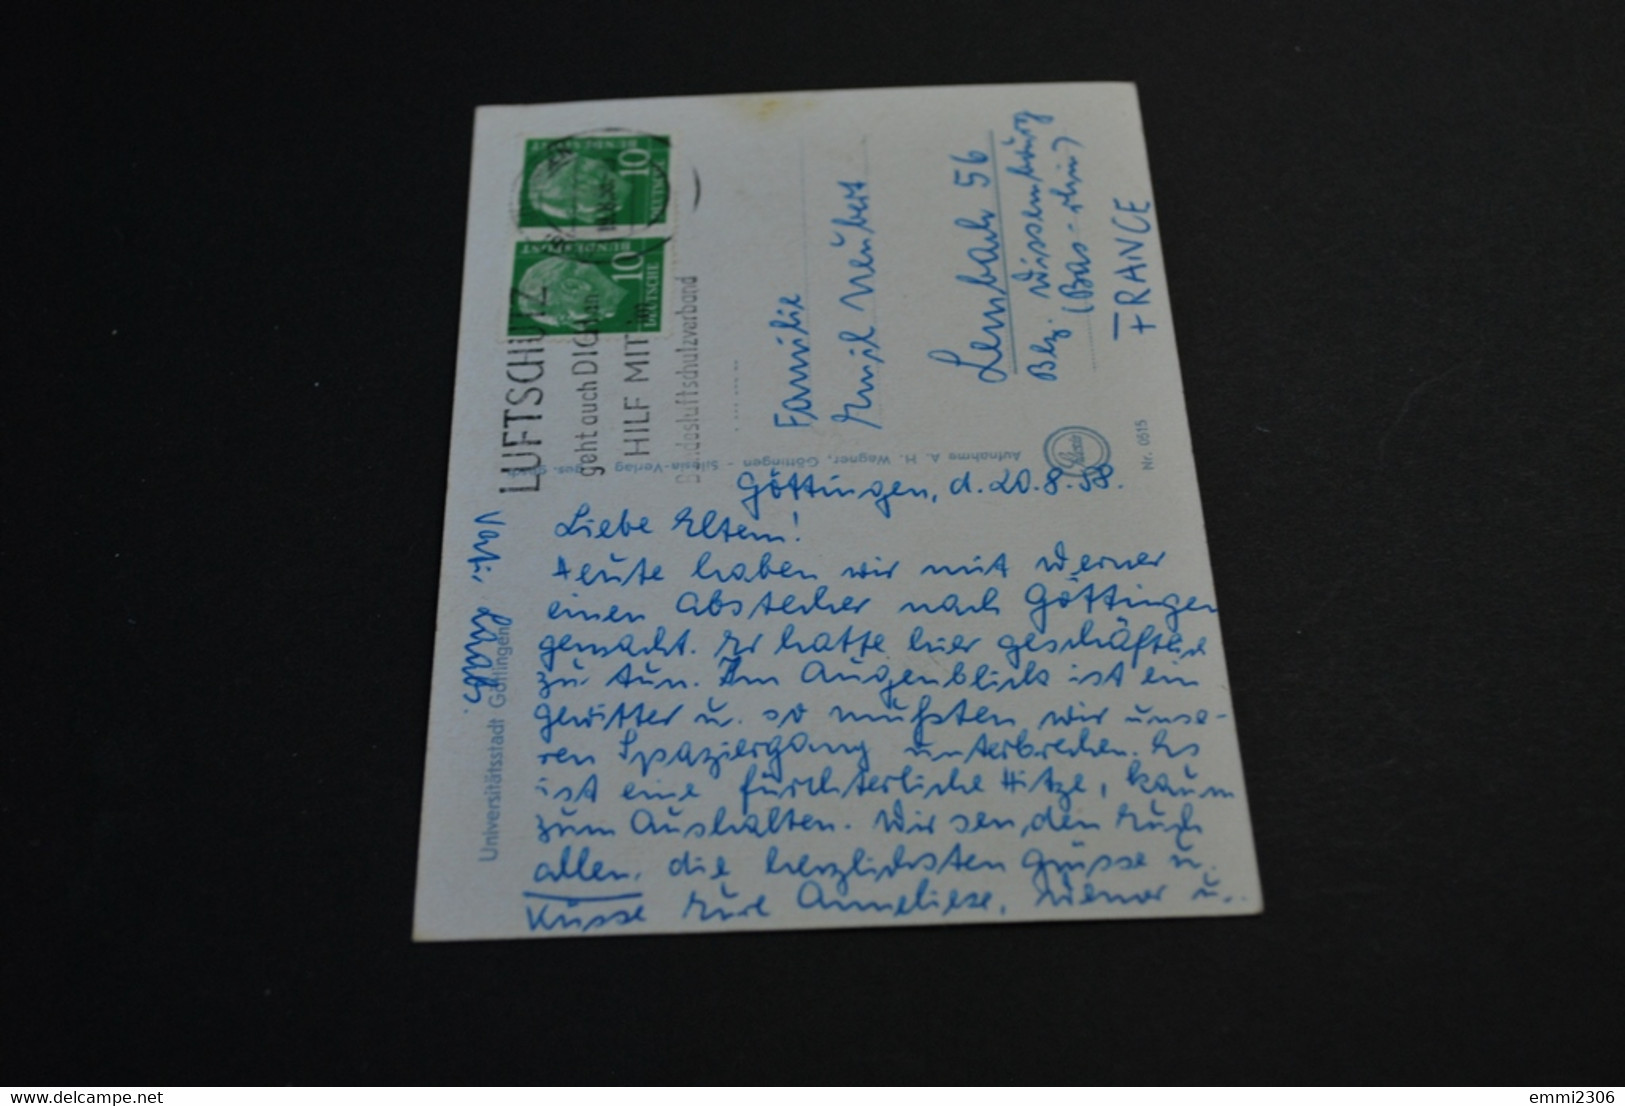 DEUTSCHE
BUNDESPOST
10
DEUTSCHE
BUNDESPOST
10
LUFTSCHUTZ
geht auch DICH an
HILF MIT im
Bundesluftschutzverband
Familie
Emil Neubert
Lembach 56
Bez. Wissembourg
(Bas-rhin)
FRANCE
Aufnahme A. H. Wagner, Göttingen - Silesia-Verlag
Silesia
Nr. 0515
Göttingen, d. 20.8.58.
Liebe Eltern!
Heute haben wir mit Werner
einen Abstecher nach Göttingen
gemacht. Er hatte hier geschäftlich
zu tun. Im Augenblick ist ein
Gewitter u. so mußten wir unse-
ren Spaziergang unterbrechen. Es
ist eine fürchterliche Hitze, kaum
zum Aushalten. Wir senden Euch
allen, die herzlichsten Grüsse u.
Küsse Eure Anneliese, Werner u.
Vati
Universitätsstadt Göttingen
emmi2306